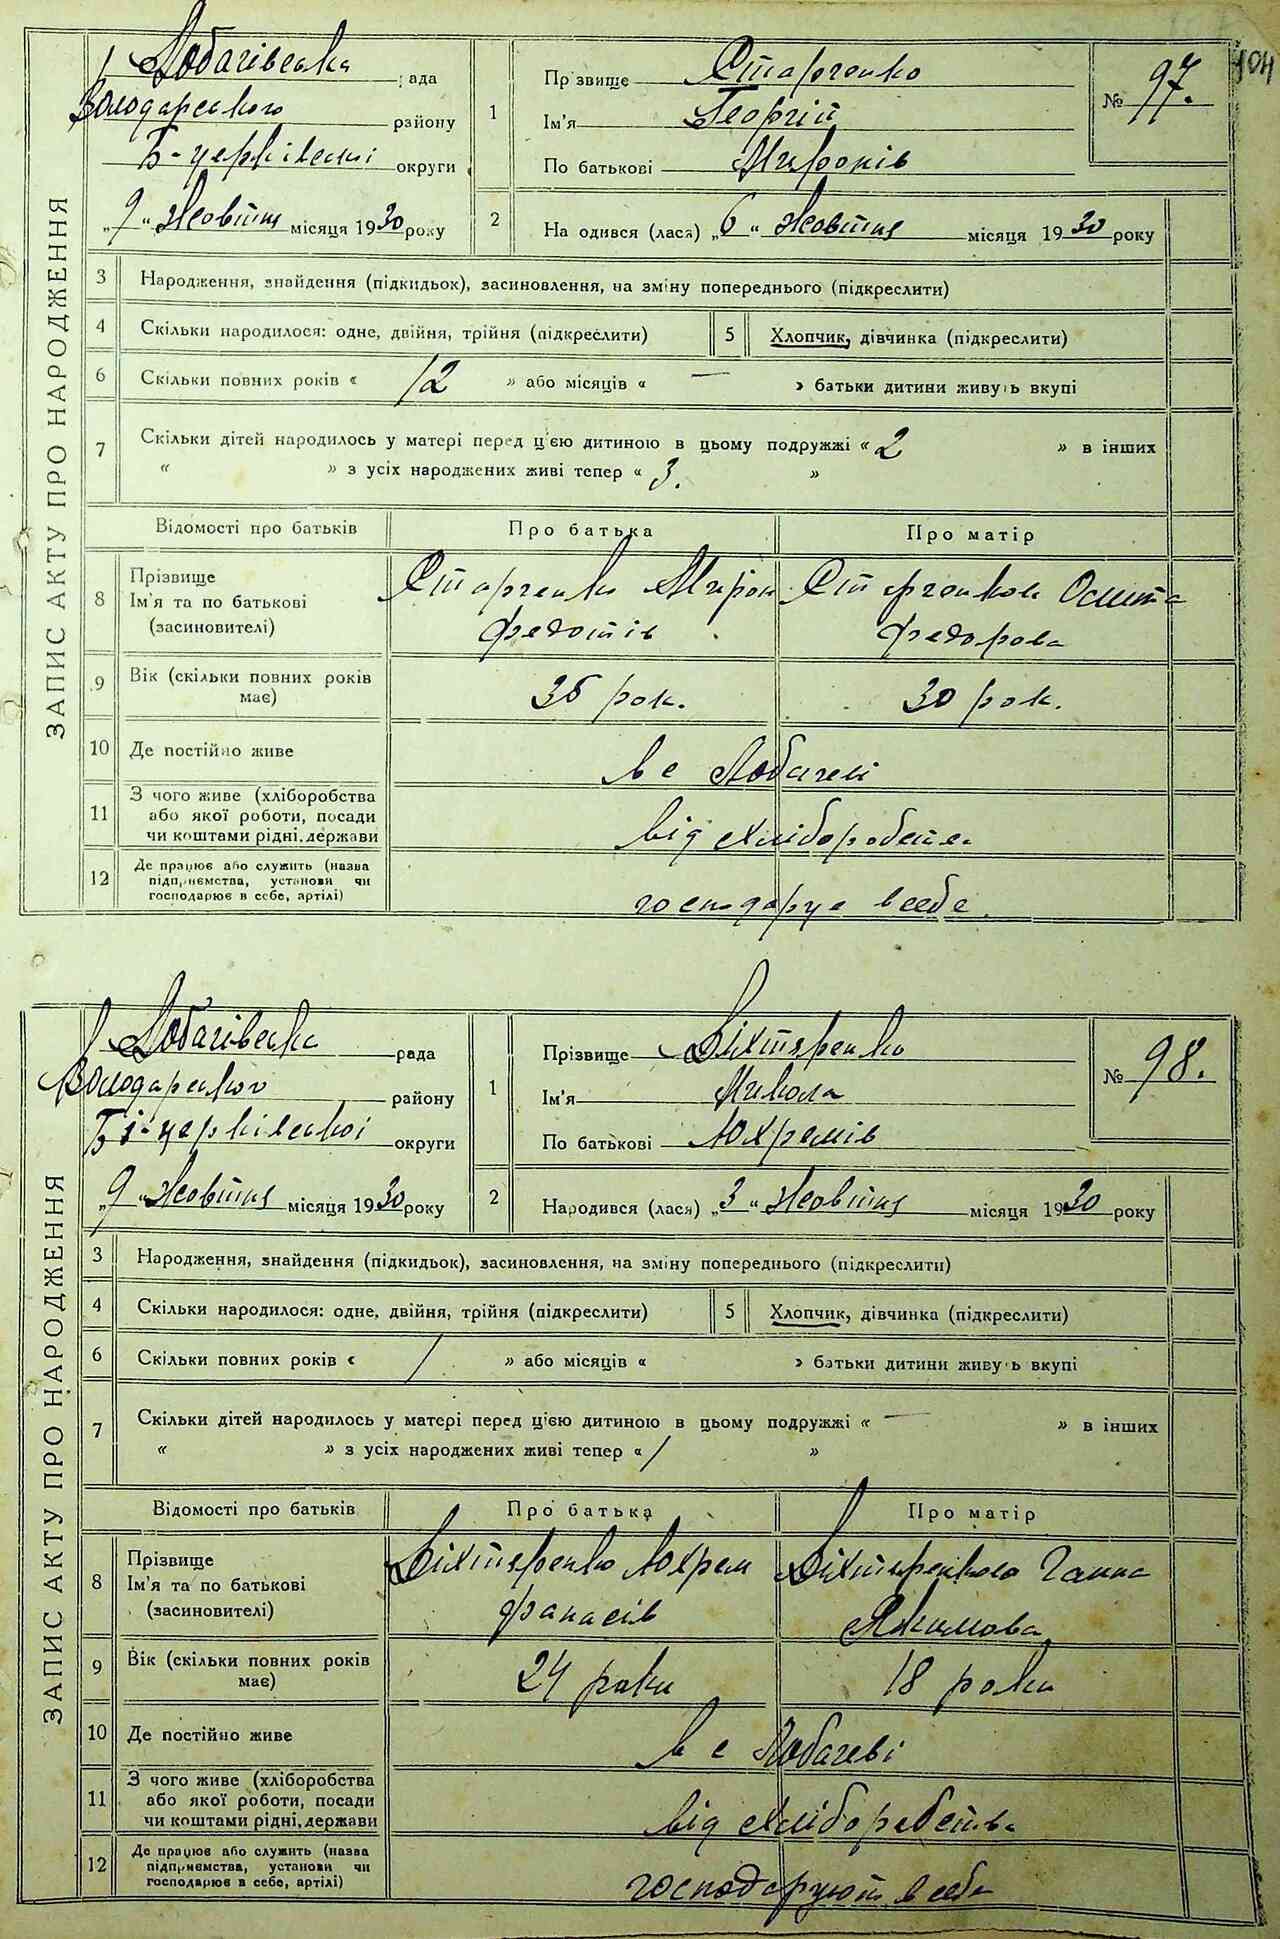 104
ЗАПИС АКТУ ПРО НАРОДЖЕННЯ
Лобачівська рада
Володарського району
Б-церківської округи
„9“ Жовтня місяця 1930 року
1
Прізвище Старченко
Ім'я Георгій
По батькові Миронів
№ 97.
2 На одився (лася) „6“ Жовтня місяця 1930 року
3 Народження, знайдення (підкидьок), засиновлення, на зміну попереднього (підкреслити)
4 Скільки народилося: одне, двійня, трійня (підкреслити) 5 Хлопчик, дівчинка (підкреслити)
6 Скільки повних років « 12 » або місяців « — » батьки дитини живуть вкупі
7 Скільки дітей народилось у матері перед цією дитиною в цьому подружжі « 2 » в інших
« » з усіх народжених живі тепер « 3. »
Відомості про батьків Про батька Про матір
8 Прізвище
Ім'я та по батькові
(засиновителі)
Старченко Мирон
Федотів
Старченкова
Федорова
9 Вік (скільки повних років має) 36 рок. 30 рок.
10 Де постійно живе в с Лобачеві
11 З чого живе (хліборобства
або якої роботи, посади
чи коштами рідні, держави
від хліборобства
12 Де працює або служить (назва
підприємства, установи чи
господарює в себе, артілі)
господарує в себе.
ЗАПИС АКТУ ПРО НАРОДЖЕННЯ
Лобачівська рада
Володарського району
Бі-церківської округи
„9“ Жовтня місяця 1930 року
1
Прізвище Віхтяренко
Ім'я Микола
По батькові Юхремів
№ 98.
2 Народився (лася) „3“ Жовтня місяця 1930 року
3 Народження, знайдення (підкидьок), засиновлення, на зміну попереднього (підкреслити)
4 Скільки народилося: одне, двійня, трійня (підкреслити) 5 Хлопчик, дівчинка (підкреслити)
6 Скільки повних років « 1 » або місяців « » батьки дитини живуть вкупі
7 Скільки дітей народилось у матері перед цією дитиною в цьому подружжі « — » в інших
« » з усіх народжених живі тепер « 1 »
Відомості про батьків Про батька Про матір
8 Прізвище
Ім'я та по батькові
(засиновителі)
Віхтяренко Юхрем
Фанасів
Віхтяренкова Ганна
Якимова
9 Вік (скільки повних років має) 24 роки 18 роки
10 Де постійно живе в с Лобачеві
11 З чого живе (хліборобства
або якої роботи, посади
чи коштами рідні, держави
від хліборобства
12 Де працює або служить (назва
підприємства, установи чи
господарює в себе, артілі)
господарують в себе